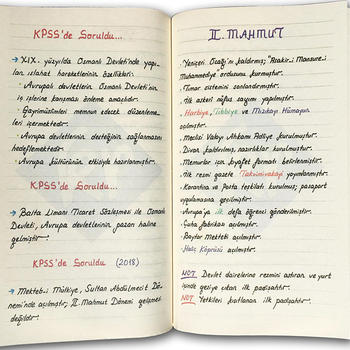 KPSS'de Soruldu...
→ XIX. yüzyılda Osmanlı Devleti'nde yapı-
lan ıslahat hareketlerinin özellikleri:
· Avrupalı devletlerin Osmanlı Devleti'nin
iç işlerine karışması önleme amaçlıdır.
· Gayrimüslimleri memnun edecek düzenleme-
leri içermektedir.
· Avrupa devletlerinin desteğinin sağlanmasını
hedeflemektedir.
· Avrupa kültürünün etkisiyle hazırlanmıştır.
KPSS'de Soruldu...
→ Balta Limanı Ticaret Sözleşmesi ile Osmanlı
Devleti, Avrupa devletlerinin pazarı haline
gelmiştir.
KPSS'de Soruldu (2018)
→ Mekteb-i Mülkiye, Sultan Abdülmecit Dö-
nemi'nde açılmıştır; II. Mahmut Dönemi gelişmesi
değildir.
II. MAHMUT
· Yeniçeri Ocağı'nı kaldırmış; "Asakir-i Mansure-i
Muhammediye ordusunu kurmuştur.
· Tımar sistemini sonlandırmıştır.
· İlk askeri nüfus sayımı yapılmıştır.
· Harbiye, Tıbbiye ve Mızıkayı Hümayun
açılmıştır.
· Meclisi Valayı Ahkamı Adliye kurulmuştur.
· Divan kaldırılmış, nazırlıklar kurulmuştur.
· Memurlar için kıyafet formatı belirlenmiştir.
· İlk resmi gazete Takvimivekayi yayınlanmıştır.
· Karantina ve Posta teşkilatı kurulmuş; pasaport
uygulamasına geçilmiştir.
· Avrupa'ya ilk defa öğrenci gönderilmiştir.
· Çuha fabrikası açılmıştır.
· Baytar Mektebi açılmıştır.
· Haliç Köprüsü açılmıştır.
NOT: Devlet dairelerine resmini astıran ve yurt
içinde geziye çıkan ilk padişahtır.
NOT: Yetkileri kısıtlanan ilk padişahtır.